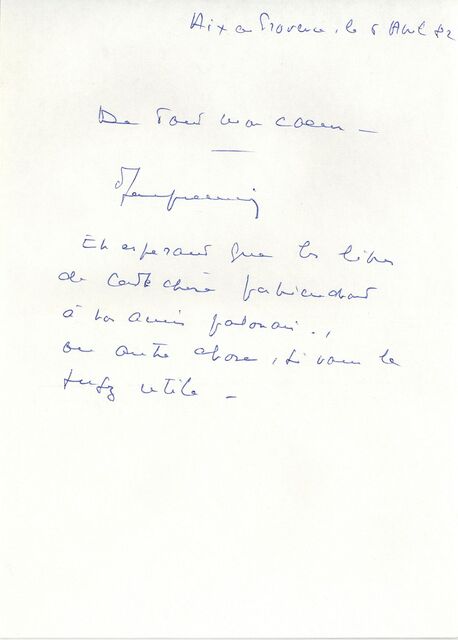 Aix en Provence, le 6 Avril 82
De tout mon coeur —
En esperant que les livres
de cette chère parviendront
à vos amis polonais.,
ou autre chose, si vous le
jugez utile —